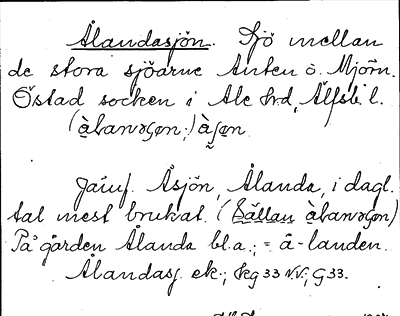 Ålandasjön. Sjö mellan
de stora sjöarne Anten o. Mjörn.
Östad socken i Ale hrd, Älfsb. l.
Jämf. Åsjön, Ålanda, i dagl.
tal mest brukat. (Sällan
På gården Ålanda bl.a.; = å-landen.
Ålandasj. ek.; Kg 33 N.V.; G 33.